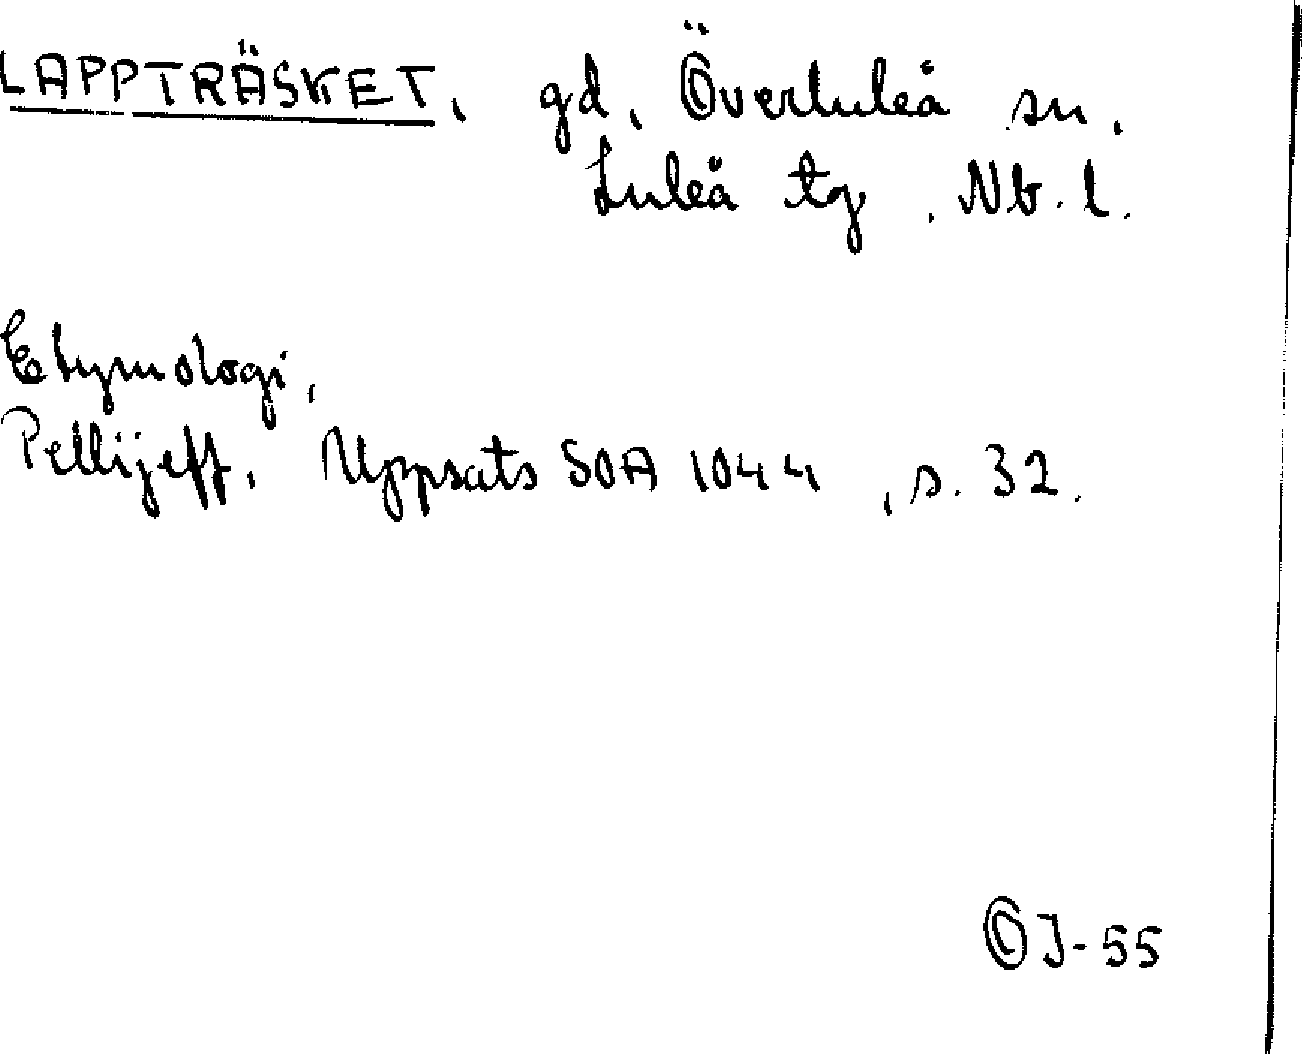 LAPPTRÄSKET, gd, Överluleå sn,
Luleå tg, Nb. l.
Etymologi,
Pellijeff, Uppsats SOA 1044, s. 32.
ÖJ-55